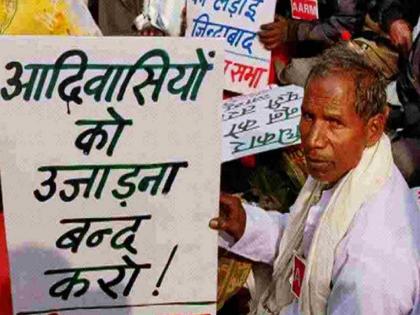 आदिवासियों
को
उजाड़ना
बन्द
करो!
लड़ाई
जिन्दाबाद
सभा
AARM